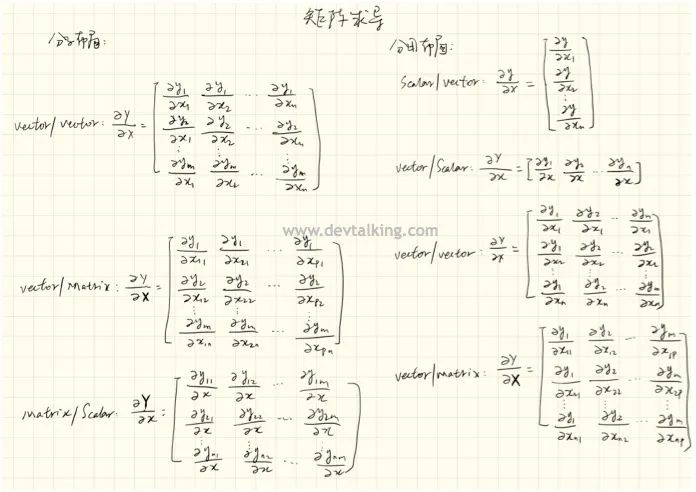 矩阵求导
分子布局:
vector/vector: ∂Y/∂x = [∂y₁/∂x₁ ∂y₁/∂x₂ ... ∂y₁/∂xₙ
∂y₂/∂x₁ ∂y₂/∂x₂ ... ∂y₂/∂xₙ
⋮ ⋮ ⋮
∂yₘ/∂x₁ ∂yₘ/∂x₂ ... ∂yₘ/∂xₙ]
vector/Matrix: ∂Y/∂X = [∂y₁/∂x₁₁ ∂y₁/∂x₂₁ ... ∂y₁/∂xₚ₁
∂y₂/∂x₁₂ ∂y₂/∂x₂₂ ... ∂y₂/∂xₚ₂
⋮ ⋮ ⋮
∂yₘ/∂x₁ₙ ∂yₘ/∂x₂ₙ ... ∂yₘ/∂xₚₙ]
matrix/Scalar: ∂Y/∂x = [∂y₁₁/∂x ∂y₁₂/∂x ... ∂y₁ₘ/∂x
∂y₂₁/∂x ∂y₂₂/∂x ... ∂y₂ₘ/∂x
⋮ ⋮ ⋮
∂yₙ₁/∂x ∂yₙ₂/∂x ... ∂yₙₘ/∂x]
分母布局:
Scalar/vector: ∂y/∂x = [∂y/∂x₁
∂y/∂x₂
⋮
∂y/∂xₙ]
vector/Scalar: ∂Y/∂x = [∂y₁/∂x ∂y₂/∂x ... ∂yₙ/∂x]
vector/vector: ∂Y/∂x = [∂y₁/∂x₁ ∂y₂/∂x₁ ... ∂yₘ/∂x₁
∂y₁/∂x₂ ∂y₂/∂x₂ ... ∂y₂/∂x₂
⋮ ⋮ ⋮
∂y₁/∂xₙ ∂y₂/∂xₙ ... ∂yₘ/∂xₙ]
vector/matrix: ∂Y/∂X = [∂y₁/∂x₁₁ ∂y₂/∂x₁₂ ... ∂yₘ/∂x₁ₚ
∂y₁/∂x₂₁ ∂y₂/∂x₂₂ ... ∂yₘ/∂x₂ₚ
⋮ ⋮ ⋮
∂y₁/∂xₙ₁ ∂y₂/∂xₙ₂ ... ∂yₘ/∂xₙₚ]
www.devtalking.com